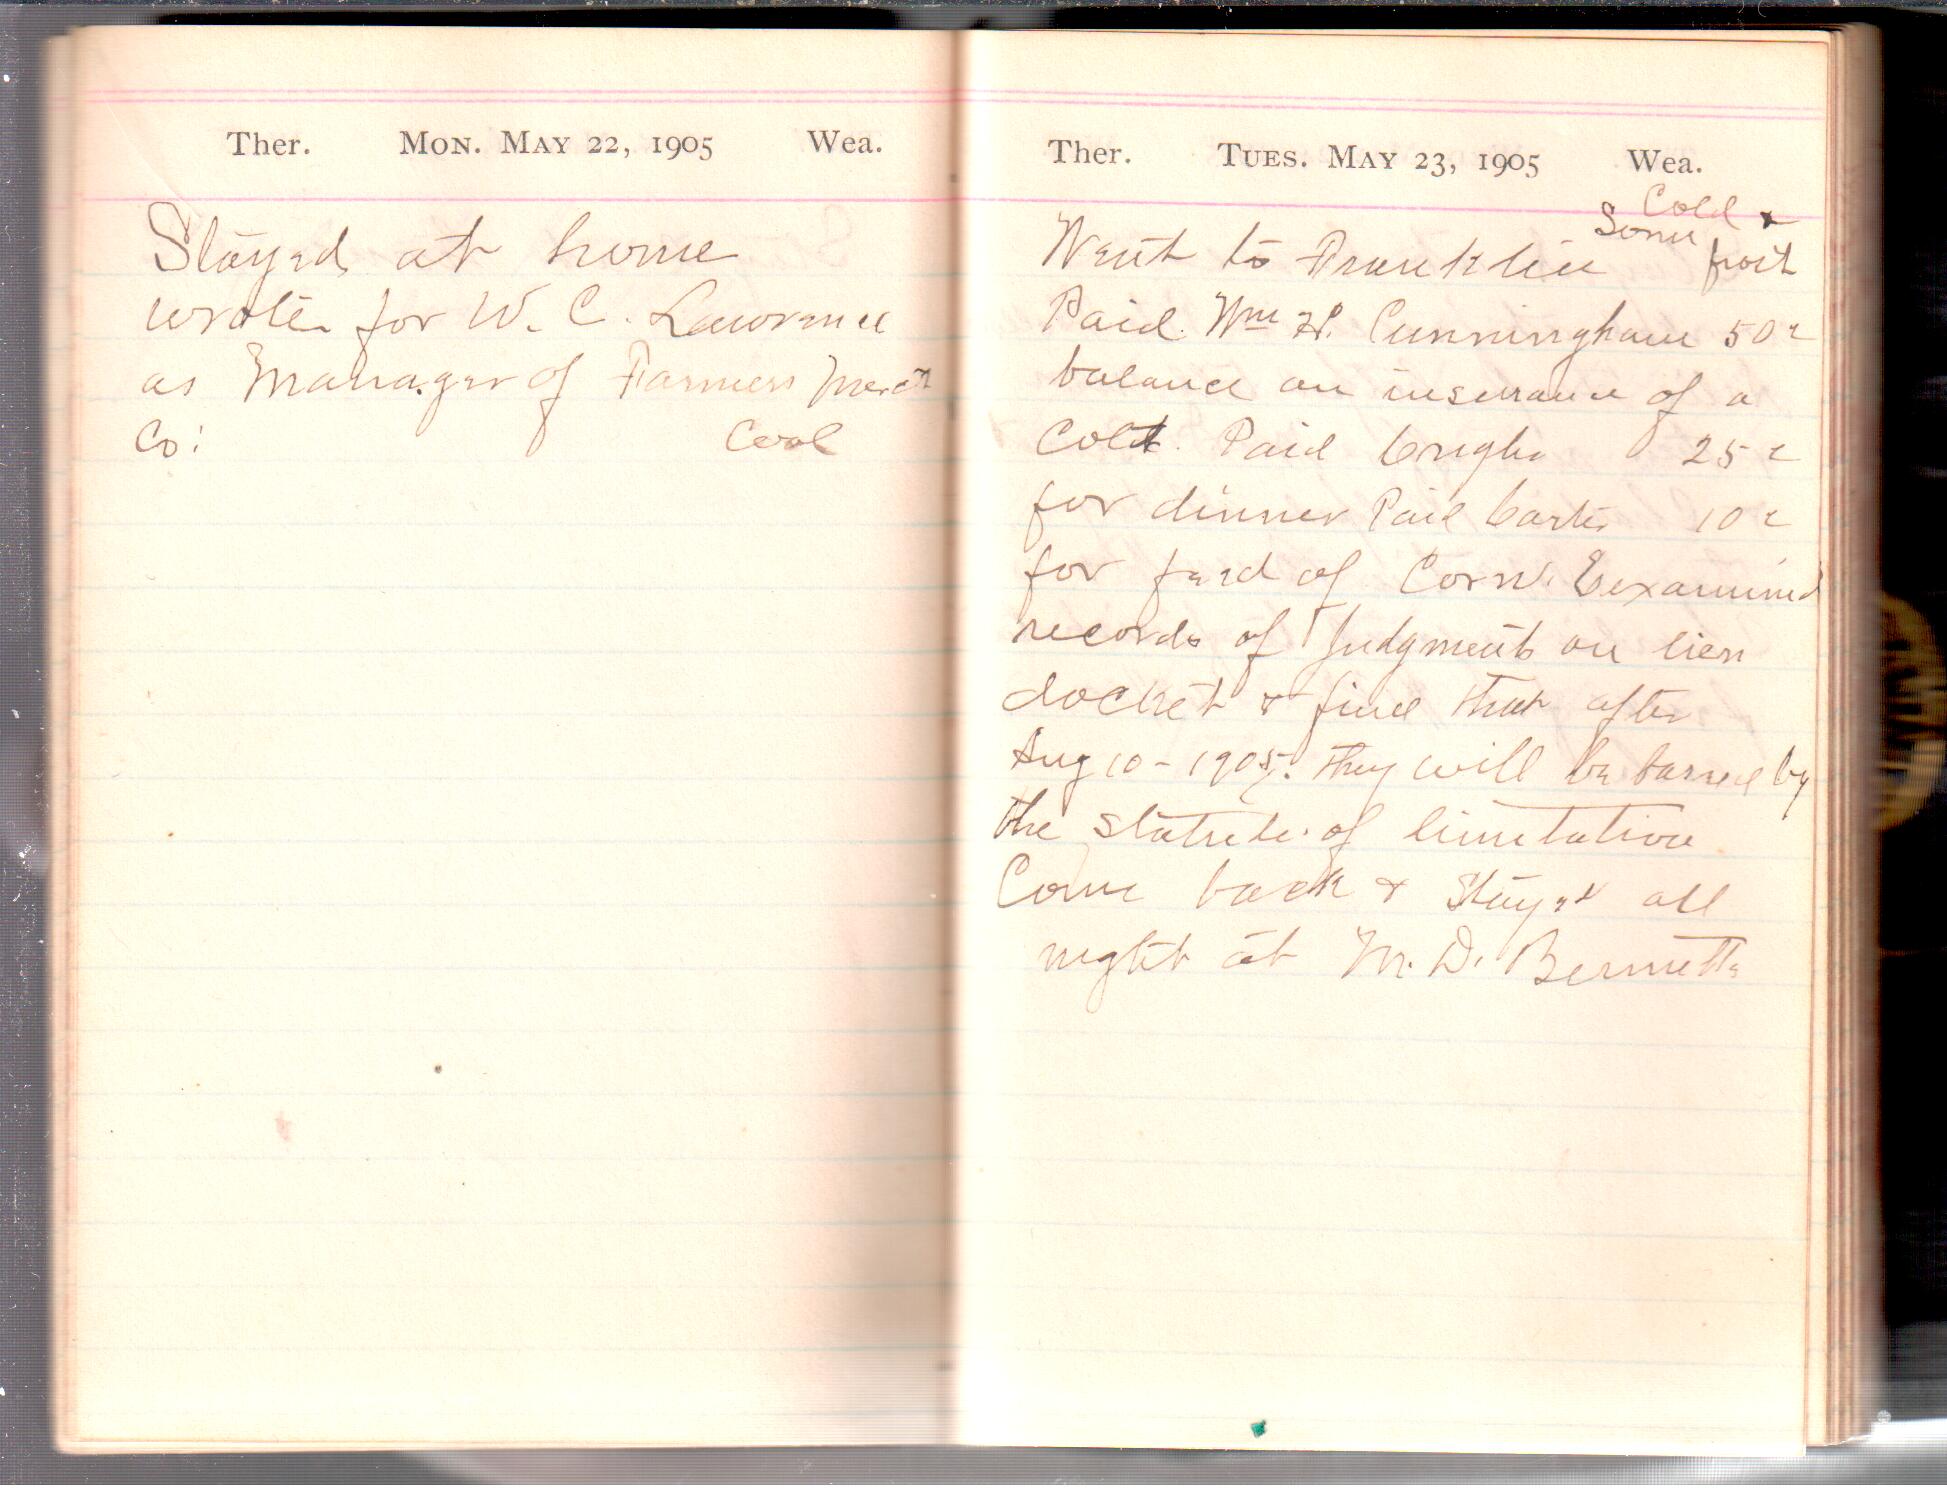 Ther. Mon. May 22, 1905 Wea.
Stayed at home
wrote for W. C. Lawrence
as Manager of Farmers Merct
Co: Cool
Ther. Tues. May 23, 1905 Wea.
Cold &
Some frost
Went to Franklin
Paid Wm H. Cunningham 50c
balance on insurance of a
Colt. Paid 25c
for dinner Paid Carter 10c
for feed of Corn. Eexamined
records of Judgments on lien
docket & find that after
Aug 10 - 1905. they will be barred by
the statute of limitation
Come back & Stayed all
night at M. D. Bennetts